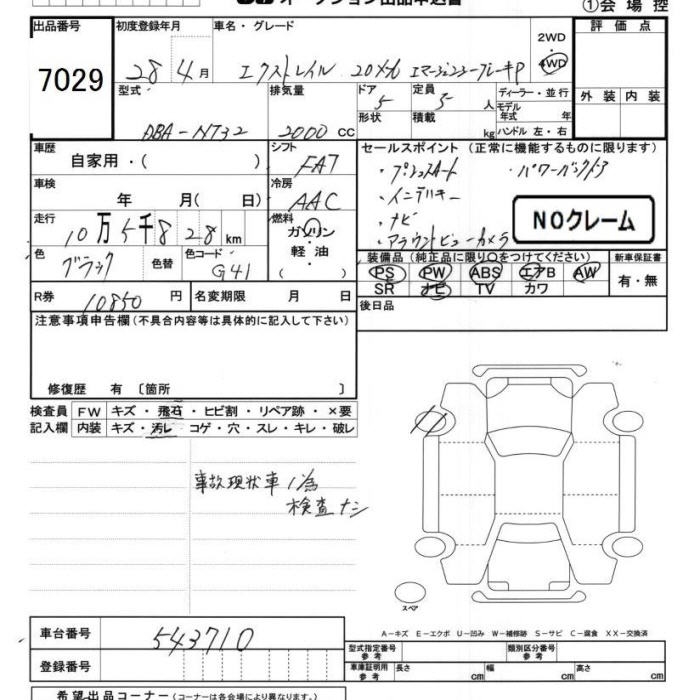 オークション出品申込書
①会場控
出品番号
7029
初度登録年月
28年4月
車名・グレード
エクストレイル 20X エマージェンシーブレーキP
2WD
4WD
評価点
外装 内装
型式
DBA-NT32
排気量
2000 cc
ドア
5
定員
5 人
形状
積載
kg
ディーラー・並行
モデル年式 年
ハンドル 左・右
車歴
自家用・( )
シフト
FAT
セールスポイント (正常に機能するものに限ります)
・プッシュスタート ・パワーバックドア
・インテリキー
・ナビ
・アラウンドビューカメラ
NOクレーム
車検
年 月(日)
冷房
AAC
走行
10万5千828km
燃料
ガソリン
軽油
( )
色
ブラック
色替
色コード
G41
装備品 (純正品に限り○をつけてください)
PS PW ABS エアB AW
SR ナビ TV カワ
新車保証書
有・無
R券
10850円
名変期限 月 日
後日品
注意事項申告欄(不具合内容等は具体的に記入して下さい)
修復歴 有〔箇所 〕
検査員記入欄
FW キズ・飛石・ヒビ割・リペア跡・×要
内装 キズ・汚レ・コゲ・穴・スレ・キレ・破レ
事故現状車の為
検査ナシ
スペア
A-キズ E-エクボ U-凹み W-補修跡 S-サビ C-腐食 XX-交換済
車台番号
543710
登録番号
型式指定番号 参考
類別区分番号 参考
車庫証明用 参考
長さ cm
幅 cm
高さ cm
希望出品コーナー (コーナーは各会場により異なります。)